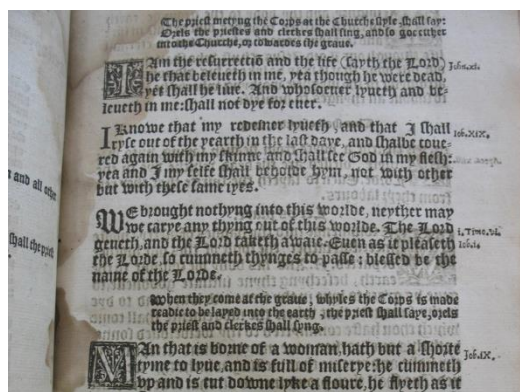 The priest metyng the Corps at the Churche style, shall say:
Orels the priestes and clerkes shall sing, and so goe either
into the Churche, or towardes the graue.
I Am the resurrectiō and the life (sayth the Lord) John.xi.
he that beleueth in me, yea though he were dead,
yet shall he liue. And whosoeuer lyueth and be-
leueth in me: shall not dye for euer.
I Knowe that my redemer lyueth, and that I shall Iob.XIX.
ryse out of the yearth in the last daye, and shalbe coue-
red again with my skinne, and shall see God in my flesh:
yea and I my selfe shall beholde hym, not with other
but with these same iyes.
WE brought nothyng into this worlde, neyther may
we carye any thyng out of this worlde. The Lord i.Time.vi.
geueth, and the Lord taketh awaie. Euen as it pleaseth Iob.i.
the Lorde, so cummeth thynges to passe: blessed be the
name of the Lorde.
when they come at the graue, whyles the Corps is made
readie to be layed into the earth, the priest shall saye, orels
the priest and clerkes shall syng.
MAn that is borne of a woman, hath but a shorte Iob.IX.
tyme to lyue, and is full of miserye: he cummeth
vp and is cut downe lyke a floure, he flyeth as it
and all other
shall the priest